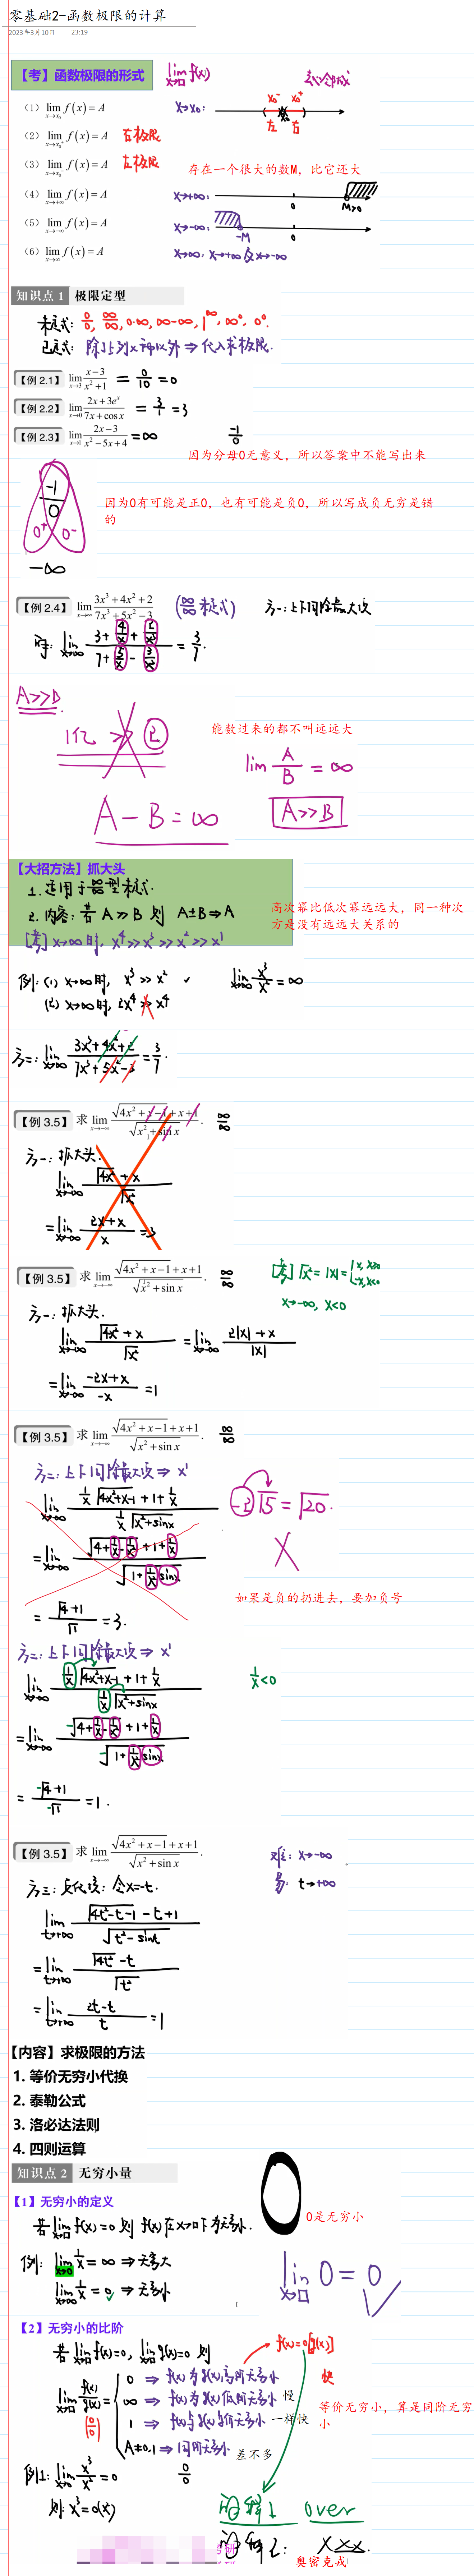 零基础2-函数极限的计算
2023年3月10日 23:19
【考】函数极限的形式
lim x→□ f(x)
(1) lim x→x₀ f(x) = A
x→x₀:
x₀⁻ x₀⁺
左 x₀ 右
(2) lim x→x₀⁺ f(x) = A 右极限
(3) lim x→x₀⁻ f(x) = A 左极限
存在一个很大的数M，比它还大
(4) lim x→+∞ f(x) = A
x→+∞: 0 M>0
(5) lim x→-∞ f(x) = A
x→-∞: -M 0
(6) lim x→∞ f(x) = A
x→∞: x→+∞及x→-∞
知识点 1 极限定型
未定式: 0/0, ∞/∞, 0·∞, ∞-∞, 1^∞, ∞⁰, 0⁰.
已定式: 除上列七种以外 ⇒ 代入求极限.
【例 2.1】 lim x→3 (x-3)/(x²+1) = 0/10 = 0
【例 2.2】 lim x→0 (2x+3eˣ)/(7x+cos x) = 3/1 = 3
【例 2.3】 lim x→1 (2x-3)/(x²-5x+4) = ∞ -1/0
因为分母0无意义，所以答案中不能写出来
-1/0
0⁺ 0⁻
因为0有可能是正0，也有可能是负0，所以写成负无穷是错
的
-∞
【例 2.4】 lim x→∞ (3x³+4x²+2)/(7x³+5x²-3) (∞/∞未定式) 方一: 上下同除最大项
lim x→∞ (3+4/x+2/x³)/(7+5/x-3/x³) = 3/7.
A>>B.
1亿 >> 2
能数过来的都不叫远远大
lim A/B = ∞
A-B=∞
A>>B
【大招方法】抓大头
1. 适用于∞/∞型未定式.
2. 内容: 若 A>>B 则 A±B⇒A
高次幂比低次幂远远大，同一种次
方是没有远远大关系的
x→∞时, x⁴>>x³>>x²>>x¹
例: (1) x→∞时, x³>>x² ✓ lim x→∞ x³/x² = ∞
(2) x→∞时, 2x⁴>>x⁴
方二: lim x→∞ (3x³+4x²+2)/(7x³+5x²-3) = 3/7.
【例 3.5】 求 lim x→-∞ (√(4x²+x-1)+x+1)/√(x²+sin x). ∞/∞
方一: 抓大头.
lim x→-∞ (√(4x²)+x)/√(x²)
= lim x→-∞ (2x+x)/x = 3
【例 3.5】 求 lim x→-∞ (√(4x²+x-1)+x+1)/√(x²+sin x). ∞/∞
√(x²) = |x| = { x, x≥0
-x, x<0
方一: 抓大头.
x→-∞, x<0
lim x→-∞ (√(4x²)+x)/√(x²) = lim x→-∞ (2|x|+x)/|x|
= lim x→-∞ (-2x+x)/(-x) = 1
【例 3.5】 求 lim x→-∞ (√(4x²+x-1)+x+1)/√(x²+sin x). ∞/∞
方二: 上下同除最大项 ⇒ x¹
lim x→-∞ (1/x √(4x²+x-1)+1+1/x)/(1/x √(x²+sinx))
-2√5 = √20.
= lim x→-∞ (√(4+1/x-1/x²)+1+1/x)/√(1+1/x² sinx)
如果是负的扔进去，要加负号
= (√4+1)/√1 = 3.
方二: 上下同除最大项 ⇒ x¹
lim x→-∞ (1/x √(4x²+x-1)+1+1/x)/(1/x √(x²+sinx)) 1/x<0
= lim x→-∞ (-√(4+1/x-1/x²)+1+1/x)/(-√(1+1/x² sinx))
= (-√4+1)/(-√1) = 1.
【例 3.5】 求 lim x→-∞ (√(4x²+x-1)+x+1)/√(x²+sin x).
难: x→-∞
易: t→+∞
方三: 负代换: 令x=-t.
lim t→+∞ (√(4t²-t-1)-t+1)/√(t²-sint)
= lim t→+∞ (√(4t²)-t)/√(t²)
= lim t→+∞ (2t-t)/t = 1
【内容】求极限的方法
1. 等价无穷小代换
2. 泰勒公式
3. 洛必达法则
4. 四则运算
知识点 2 无穷小量
【1】无穷小的定义
0
0是无穷小
若 lim x→□ f(x)=0 则 f(x)在x→□下为无穷小.
例: lim x→0 1/x = ∞ ⇒ 无穷大
lim x→∞ 1/x = 0 ✓ ⇒ 无穷小
lim x→□ 0 = 0
1
【2】无穷小的比阶
若 lim x→□ f(x)=0, lim x→□ g(x)=0 则
f(x)=o[g(x)]
lim x→□ f(x)/g(x) = { 0 ⇒ f(x)为g(x)高阶无穷小 快
∞ ⇒ f(x)为g(x)低阶无穷小 慢
1 ⇒ f(x)与g(x)等价无穷小 一样快
A≠0,1 ⇒ 同阶无穷小 差不多
(0/0)
等价无穷小，算是同阶无穷
小
例1: lim x→0 x³/x² = 0 0/0
则: x³=o(x²)
over
奥密克戎